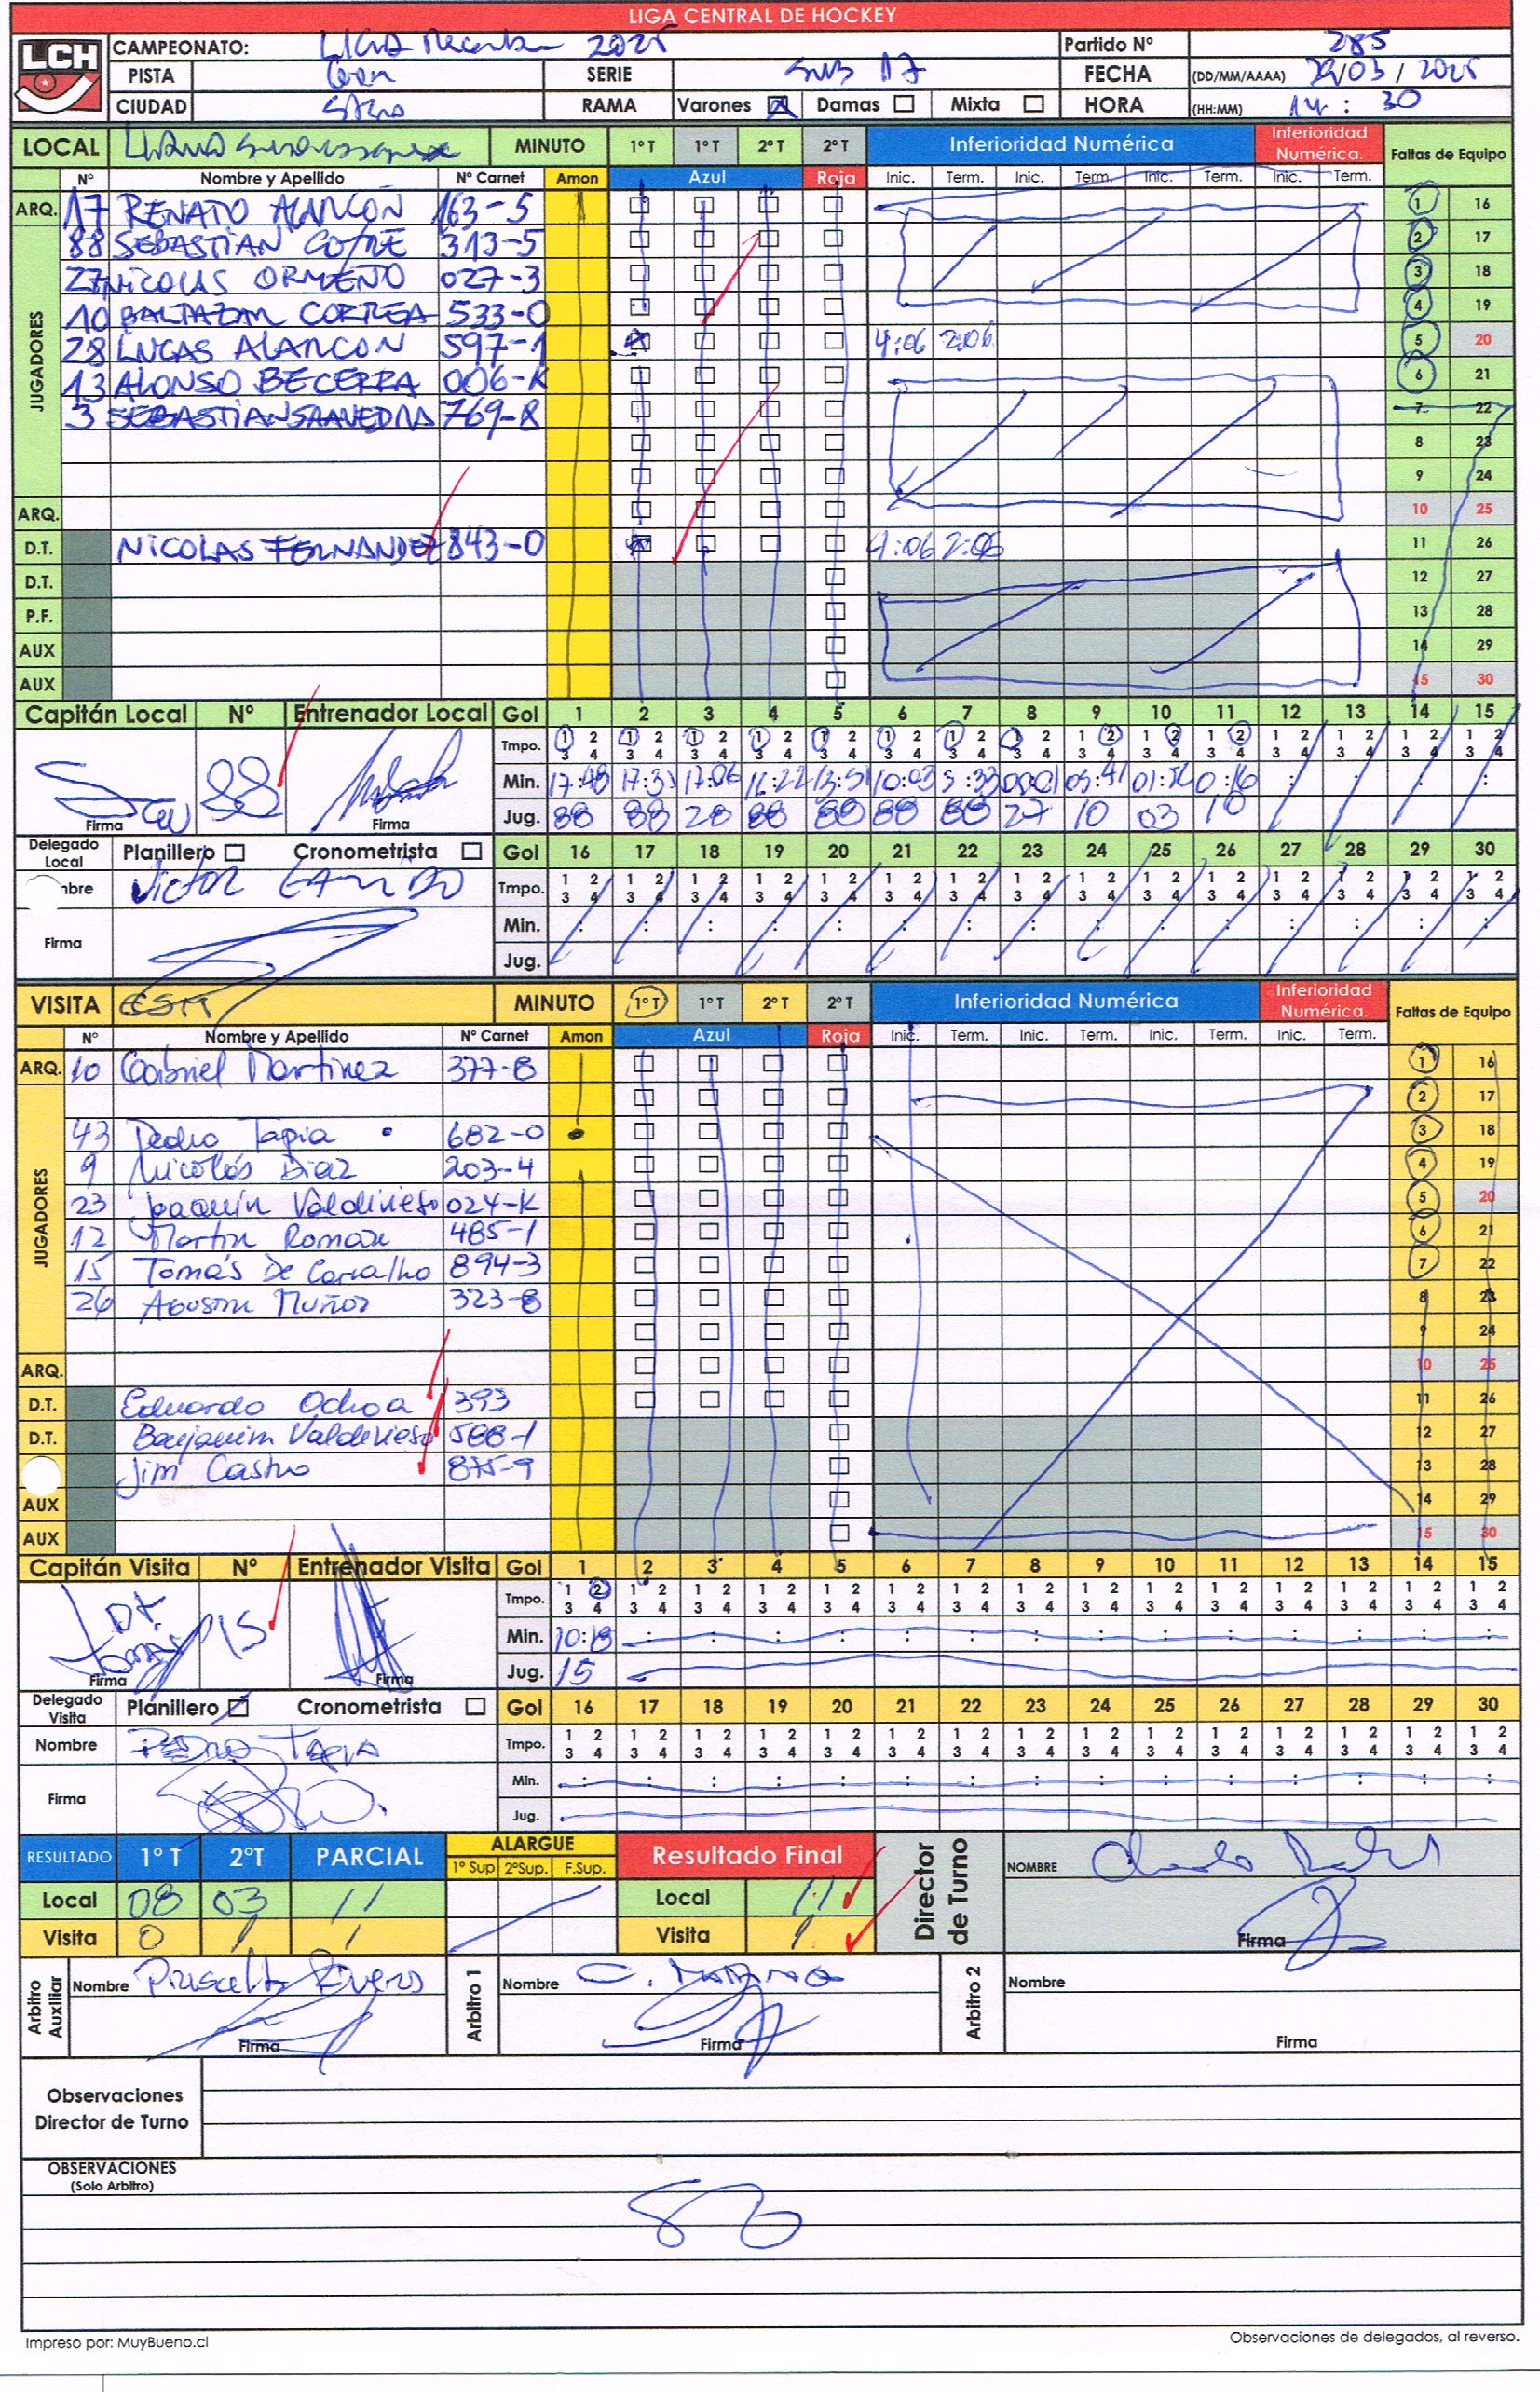 LIGA CENTRAL DE HOCKEY
LCH CAMPEONATO: 2025 Partido Nº 285
PISTA SERIE SUB 17 FECHA (DD/MM/AAAA) 29/03/2025
CIUDAD RAMA Varones Damas Mixta HORA (HH:MM) 14:30
LOCAL MINUTO 1º T 1º T 2º T 2º T Inferioridad Numérica Inferioridad Numérica. Faltas de Equipo
Nº Nombre y Apellido Nº Carnet Amon Azul Roja Inic. Term. Inic. Term. Inic. Term. Inic. Term.
ARQ. 17 RENATO ALARCÓN 163-5 1 16
JUGADORES
88 SEBASTIAN COFRE 313-5 2 17
27 NICOLAS ORMEÑO 027-3 3 18
10 BALTAZAR CORREA 533-0 4 19
28 LUCAS ALARCON 597-1 4:06 2:06 5 20
13 ALONSO BECERRA 006-K 6 21
3 SEBASTIAN SAAVEDRA 769-8 7 22
8 23
9 24
ARQ. 10 25
D.T. NICOLAS FERNANDEZ 843-0 4:06 2:06 11 26
D.T. 12 27
P.F. 13 28
AUX 14 29
AUX 15 30
Capitán Local Nº Entrenador Local Gol 1 2 3 4 5 6 7 8 9 10 11 12 13 14 15
Tmpo. 1 2 1 2 1 2 1 2 1 2 1 2 1 2 1 2 1 2 1 2 1 2 1 2 1 2 1 2 1 2
3 4 3 4 3 4 3 4 3 4 3 4 3 4 3 4 3 4 3 4 3 4 3 4 3 4 3 4 3 4
88 Min. 17:06 10:03 0:16
Firma Firma Jug. 88 88 28 88 88 88 88 27 10 03 10
Delegado Local Planillero Cronometrista Gol 16 17 18 19 20 21 22 23 24 25 26 27 28 29 30
mbre Victor Tmpo. 1 2 1 2 1 2 1 2 1 2 1 2 1 2 1 2 1 2 1 2 1 2 1 2 1 2 1 2 1 2
3 4 3 4 3 4 3 4 3 4 3 4 3 4 3 4 3 4 3 4 3 4 3 4 3 4 3 4 3 4
Min.
Firma
Jug.
VISITA MINUTO 1º T 1º T 2º T 2º T Inferioridad Numérica Inferioridad Numérica. Faltas de Equipo
Nº Nombre y Apellido Nº Carnet Amon Azul Roja Inic. Term. Inic. Term. Inic. Term. Inic. Term.
ARQ. 10 Gabriel Martinez 377-8 1 16
JUGADORES
2 17
43 Pedro Tapia 682-0 3 18
9 Nicolás Diaz 203-4 4 19
23 Joaquín Valdivieso 024-K 5 20
12 Martin Roman 485-1 6 21
15 Tomás De Carvalho 894-3 7 22
26 Agustin Muñoz 323-8 8 23
9 24
ARQ. 10 25
D.T. Eduardo Ochoa 393 11 26
D.T. Benjamim Valdivieso 588-1 12 27
Jim Castro 875-9 13 28
AUX 14 29
AUX 15 30
Capitán Visita Nº Entrenador Visita Gol 1 2 3 4 5 6 7 8 9 10 11 12 13 14 15
Tmpo. 1 2 1 2 1 2 1 2 1 2 1 2 1 2 1 2 1 2 1 2 1 2 1 2 1 2 1 2 1 2
3 4 3 4 3 4 3 4 3 4 3 4 3 4 3 4 3 4 3 4 3 4 3 4 3 4 3 4 3 4
15 Min.
Firma Firma Jug. 15
Delegado Visita Planillero Cronometrista Gol 16 17 18 19 20 21 22 23 24 25 26 27 28 29 30
Nombre Pedro Tapia Tmpo. 1 2 1 2 1 2 1 2 1 2 1 2 1 2 1 2 1 2 1 2 1 2 1 2 1 2 1 2 1 2
3 4 3 4 3 4 3 4 3 4 3 4 3 4 3 4 3 4 3 4 3 4 3 4 3 4 3 4 3 4
Min.
Firma
Jug.
RESULTADO 1º T 2ºT PARCIAL ALARGUE Resultado Final Director de Turno NOMBRE
1º Sup 2ºSup. F.Sup.
Local 08 03 11 Local 11
Visita 0 1 1 Visita 1 Firma
Arbitro Auxiliar Nombre Priscella Rivero Arbitro 1 Nombre Arbitro 2 Nombre
Firma Firma Firma
Observaciones
Director de Turno
OBSERVACIONES
(Solo Arbitro)
Impreso por: MuyBueno.cl Observaciones de delegados, al reverso.